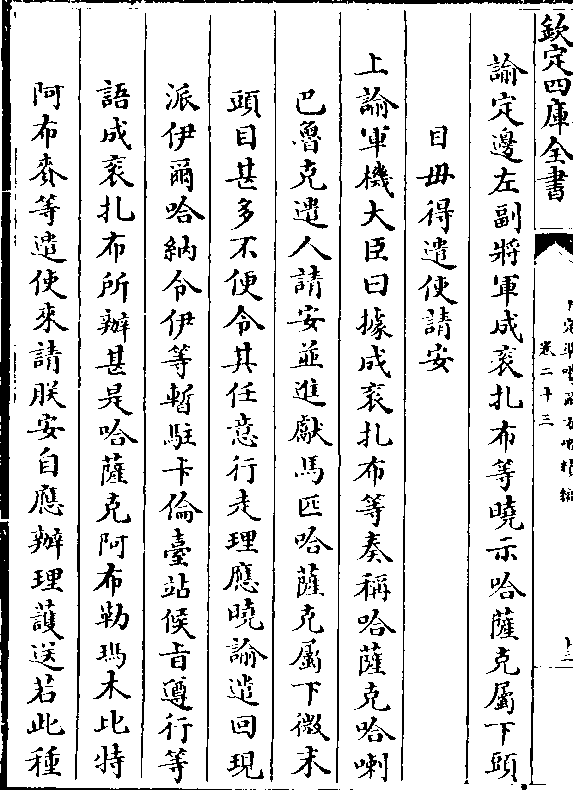 欽定四庫全書
卷二十三
諭定邊左副將軍成衮扎布等曉示哈薩克屬下頭
目毋得遣使請安
上諭軍機大臣曰據成衮扎布等奏稱哈薩克哈喇
巴魯克遣人請安並進獻馬匹哈薩克屬下微末
頭目甚多不便令其任意行走理應曉諭遣回現
派伊爾哈納令伊等暫駐卡倫臺站候旨遵行等
語成衮扎布所辦甚是哈薩克阿布勒瑪木比特
阿布賚等遣使來請朕安自應辦理護送若此種